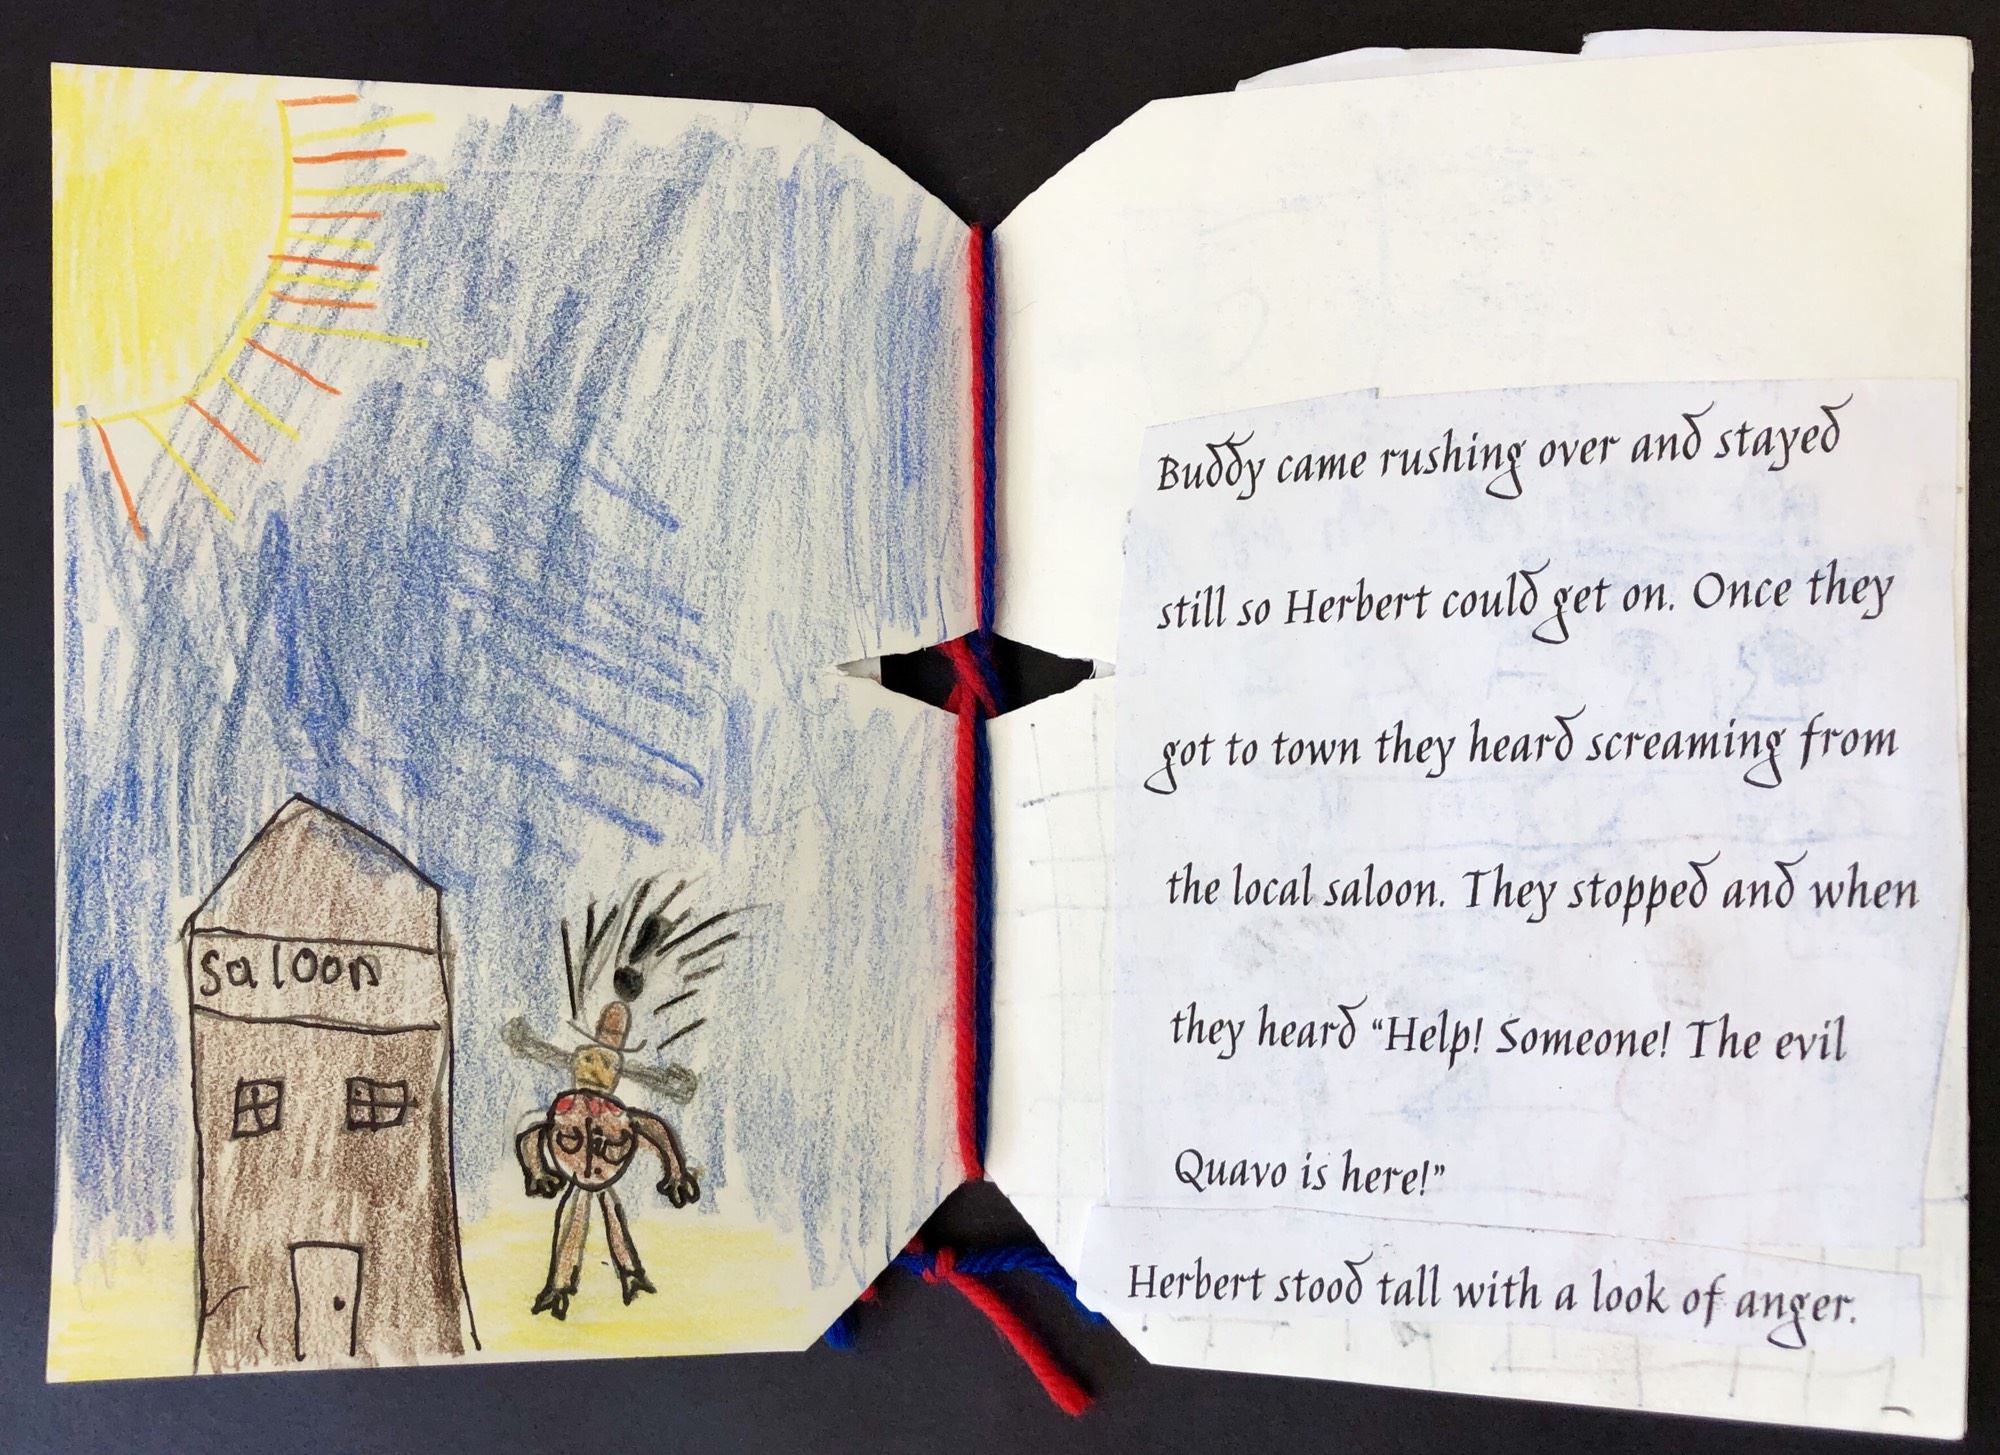 Saloon
Buddy came rushing over and stayed
still so Herbert could get on. Once they
got to town they heard screaming from
the local saloon. They stopped and when
they heard “Help! Someone! The evil
Quavo is here!”
Herbert stood tall with a look of anger.